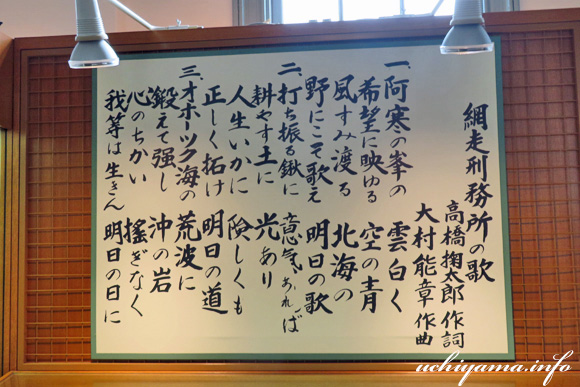 網走刑務所の歌
高橋掬太郎 作詞
大村能章 作曲
一、阿寒の峯の 雲白く
希望に映ゆる 空の青
風すみ渡る 北海の
野にこそ歌え 明日の歌
二、打ち振る鍬に 意気あれば
耕やす土に 光あり
人生いかに 険しくも
正しく拓け 明日の道
三、オホーツク海の 荒波に
鍛えて強し 沖の岩
心のちかい 搖ぎなく
我等は生きん 明日の日に
uchiyama.info